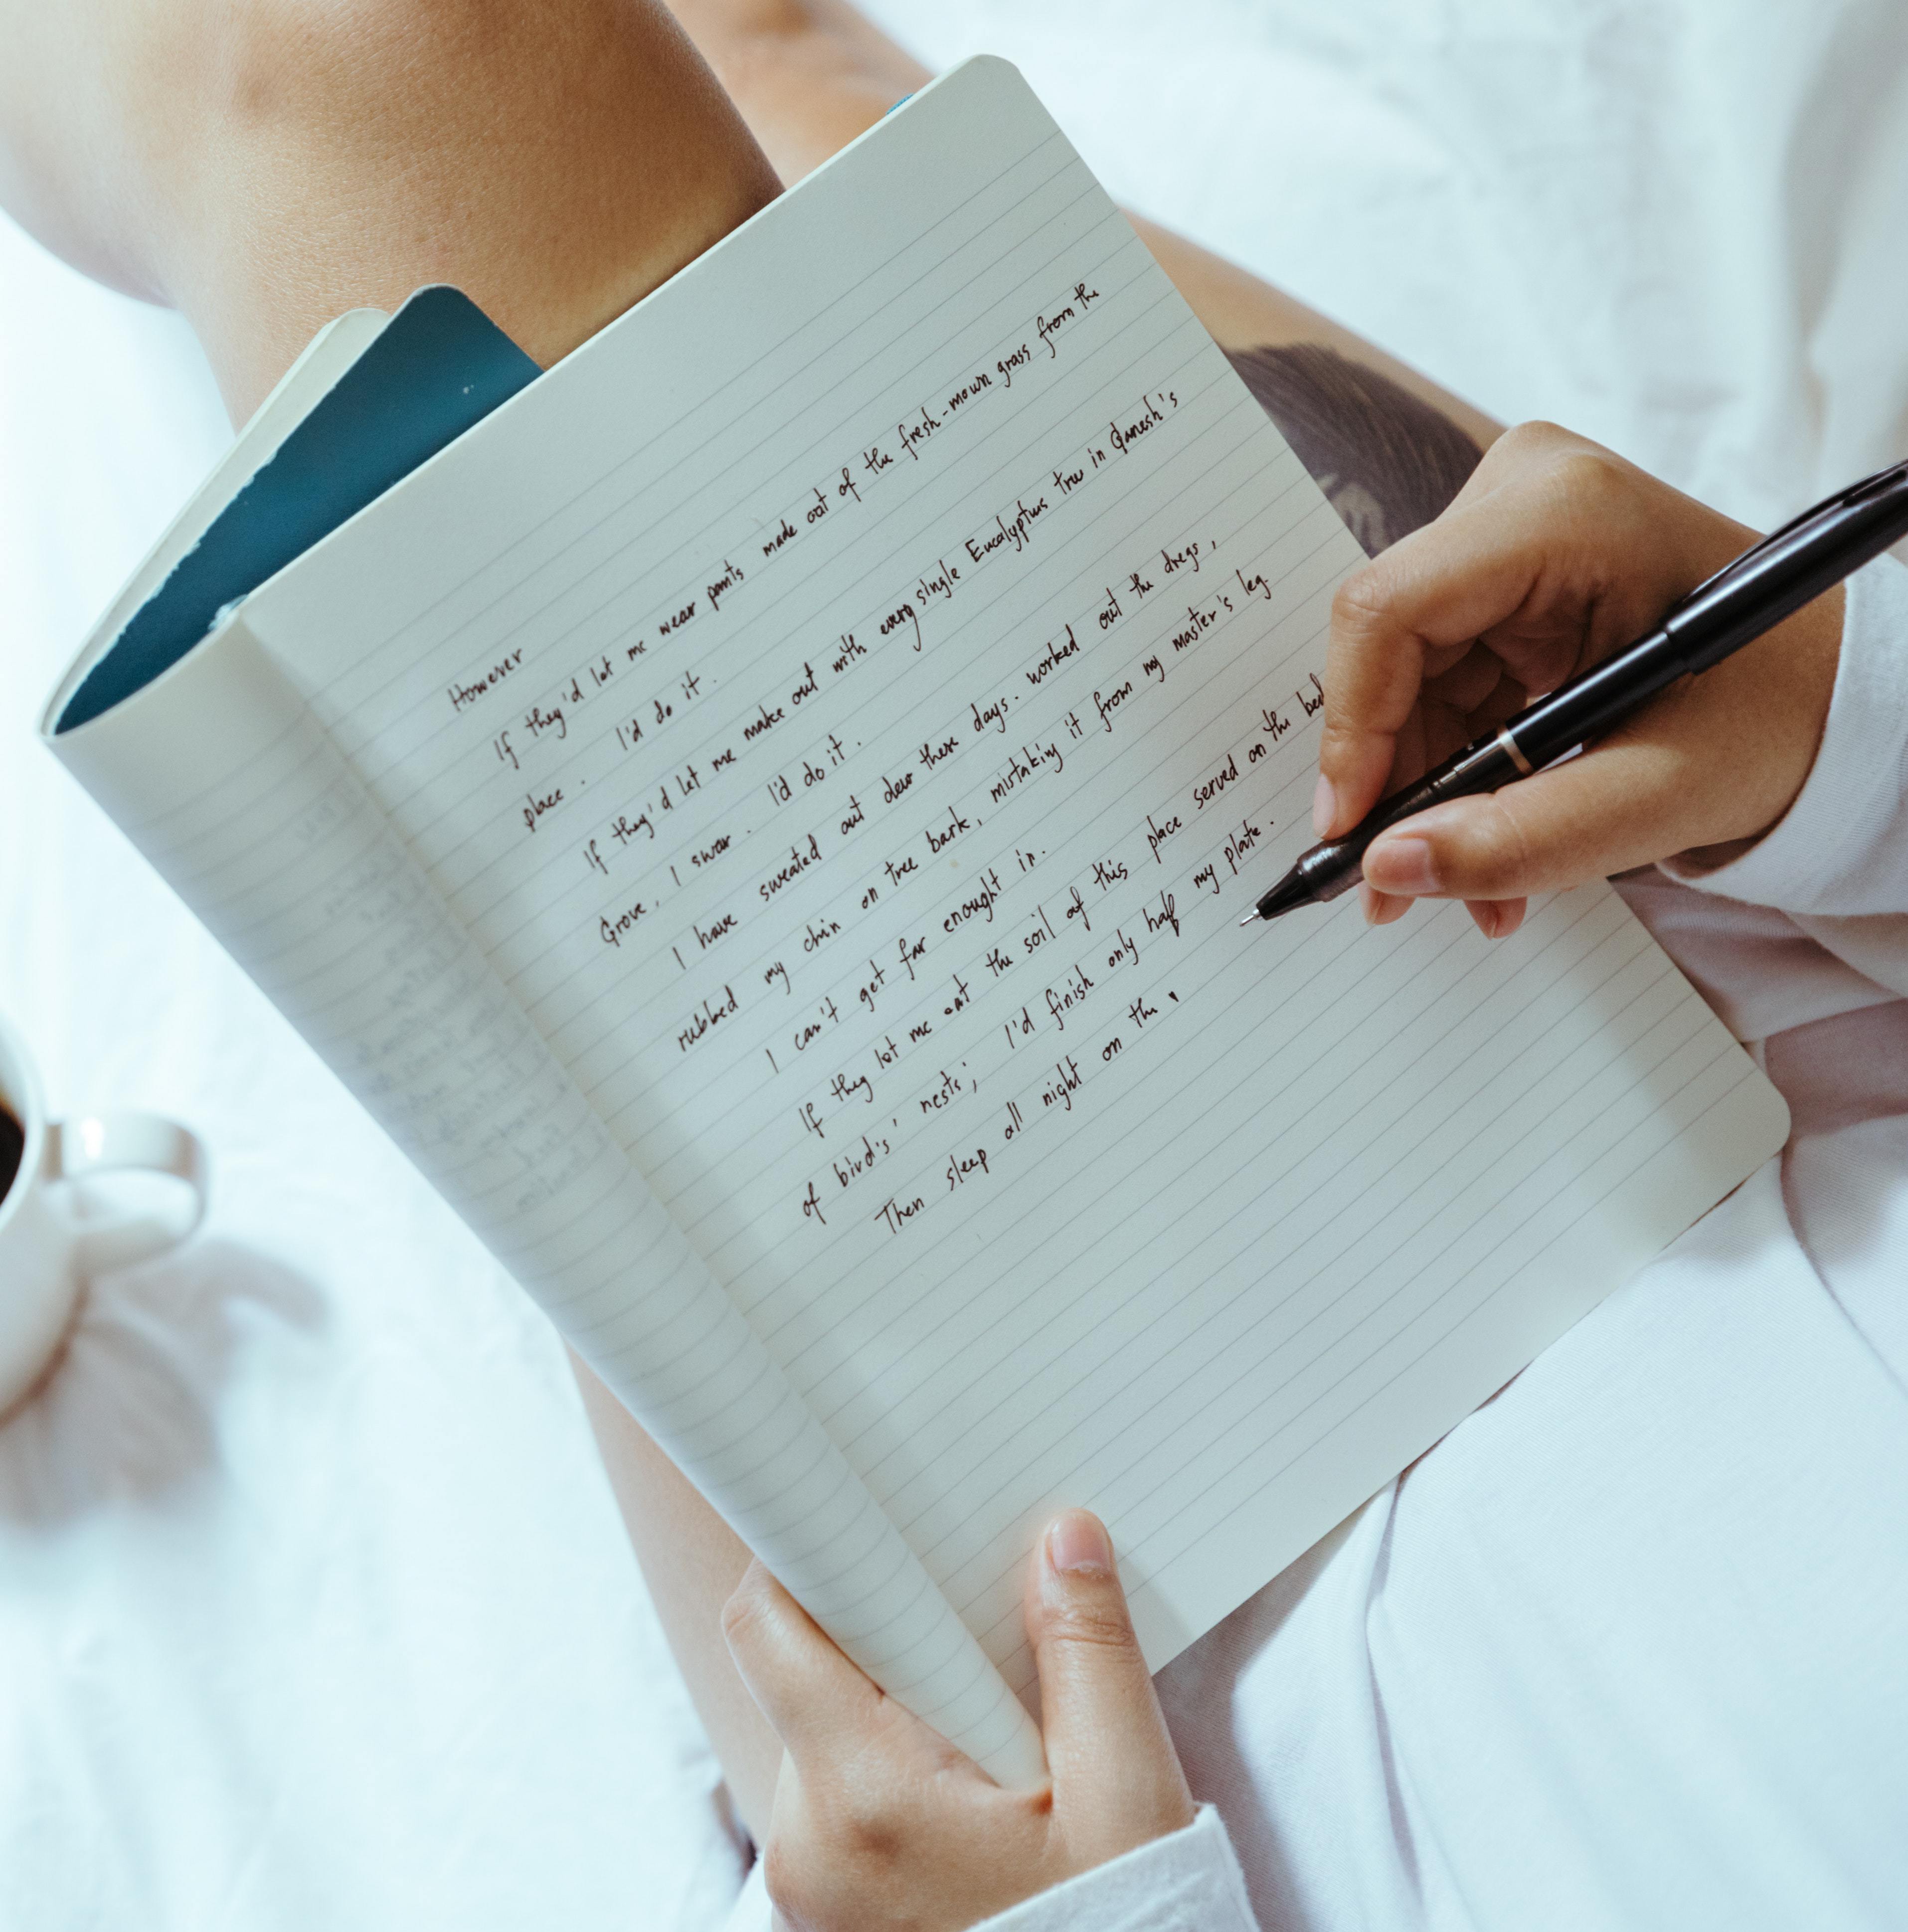 However
If they'd let me wear pants made out of the fresh-mown grass from the
place. I'd do it.
If they'd let me make out with every single Eucalyptus tree in Ganesh's
Grove, I swear. I'd do it.
I have sweated out dew these days. worked out the dregs,
rubbed my chin on tree bark, mistaking it from my master's leg.
I can't get far enought in.
If they let me eat the soil of this place served on the
of bird's' nests; I'd finish only half my plate.
Then sleep all night on the